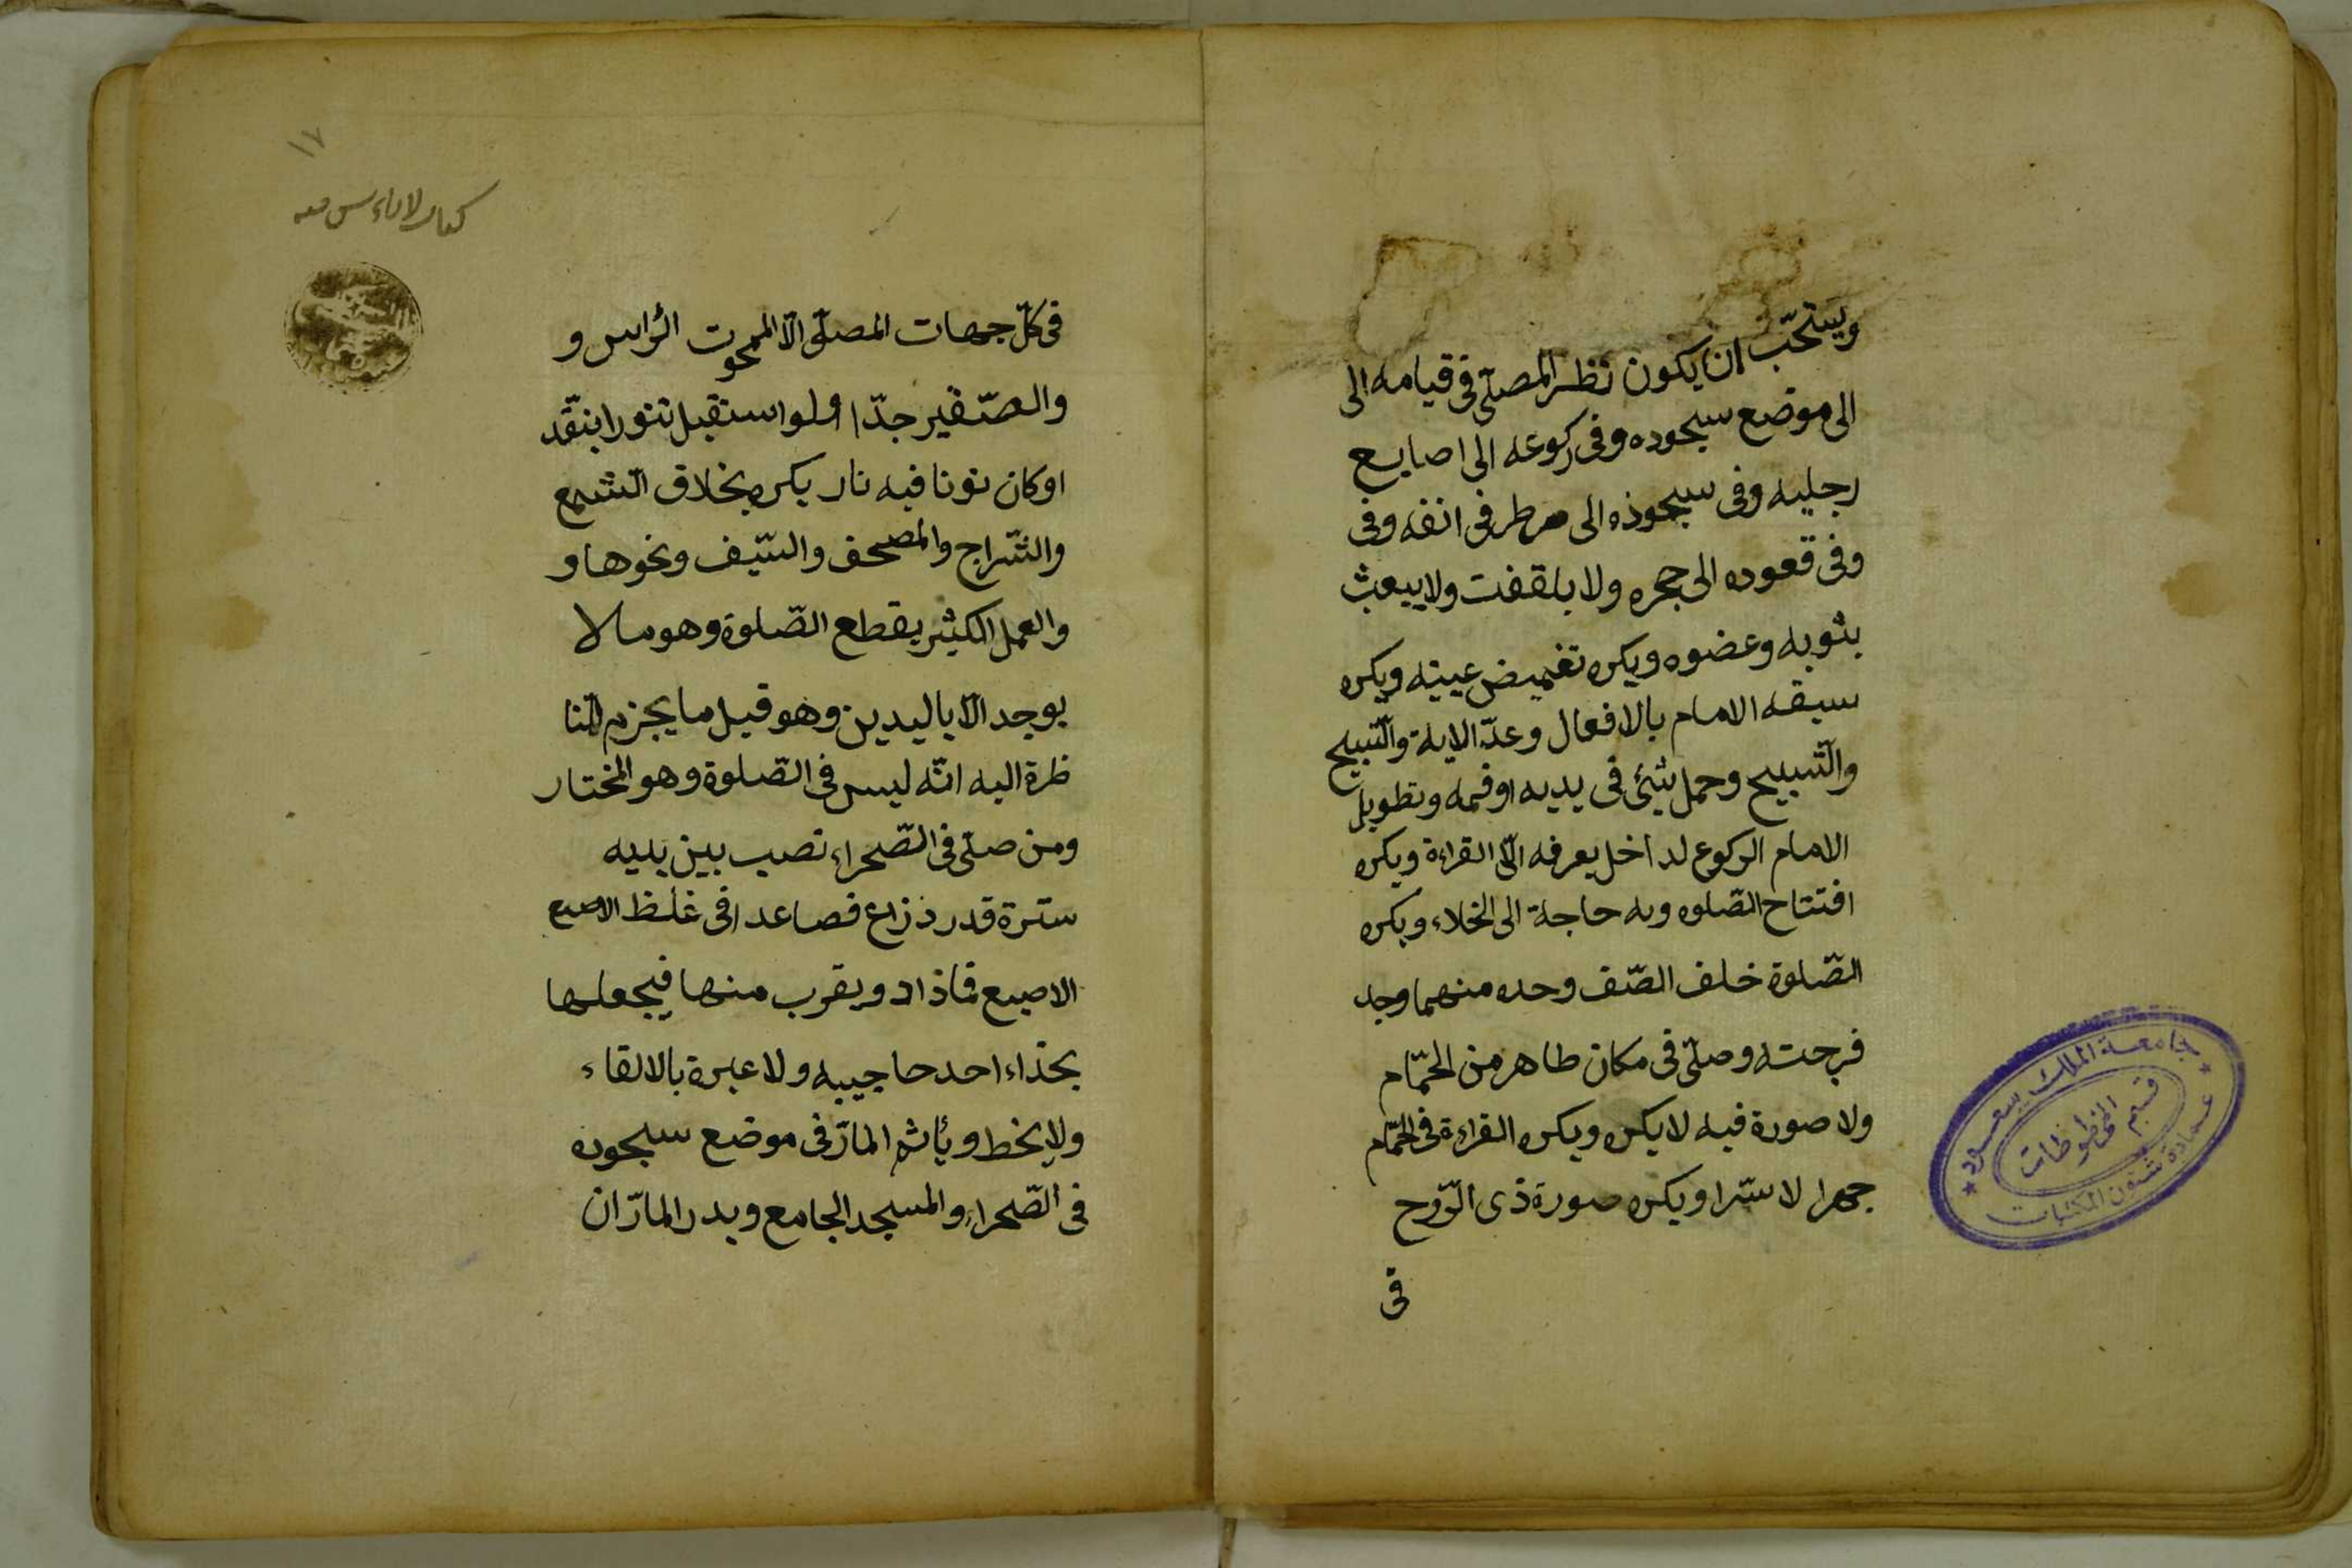 ويستحّب ان يكون نظر المصلّى فى قيامه الى
الى موضع سجوده وفى ركوعه الى اصابع
رجليه وفى سجوذه الى طرفى انفه وفى
وفى قعوده الى حجره ولا يلقفت ولا يبعث
بثوبه وعضوه ويكره تغميض عينيه ويكره
سبقه الامام بالافعال وعدّ الاية والتّسبيح
والتّسبيح وحمل شئ فى يديه اوفمه وتطويل
الامام الركوع لداخل يعرفه الّا القراءة ويكره
افتتاح الصّلوه وبه حاجة الى الخلاء ويكره
الصّلوة خلف الصّف وحده منهما وجد
فرجته وصلّى فى مكان طاهر من الحمّام
ولا صورة فيه لا يكره ويكره القراءة فى الحمّام
جهرا لا سّرا ويكره صورة ذى الرّوح
فى
جامعة الملك سعود
قسم المخطوطات
عمادة شئون المكتبات
١٧
فى كلّ جهات المصلّى الّا الممحوت الرّاس و
والصّغير جدّا ولو استقبل تنورا ينّقد
اوكان نونا فيه نار يكره بخلاف الشمع
والسّراج والمصحف والسّيف ونحوها و
والعمل الكثير يقطع الصّلوة وهو مالا
يوجد الّا باليدين وهو قيل ما يجزم النا
ظرة اليه انّه ليس فى الصّلوة وهو المختار
ومن صلّى فى الصّحراء نصب بين يديه
سترة قدر ذزاع فصاعدا فى غلظ الاصبع
الاصبع فمازاد ويقرب منها فيجعلها
بحذاء احد حاجيبه ولا عبرة بالالقاء
ولا يخط ويأثم المارّ فى موضع سجوده
فى الصّحراء والمسجد الجامع ويدر المارّ ان